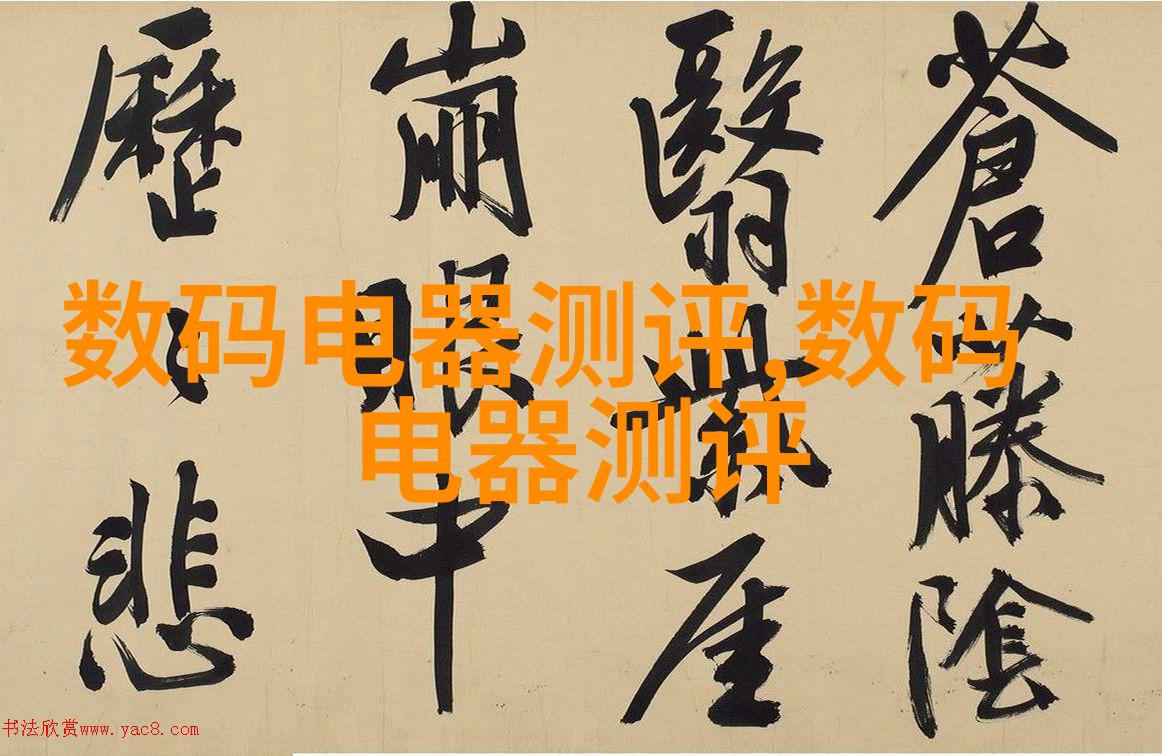 蒼藤陰
翳厓
崩眼中
歷悲
数码电器测评,数码
电器测评
书法欣赏www.yac8.com